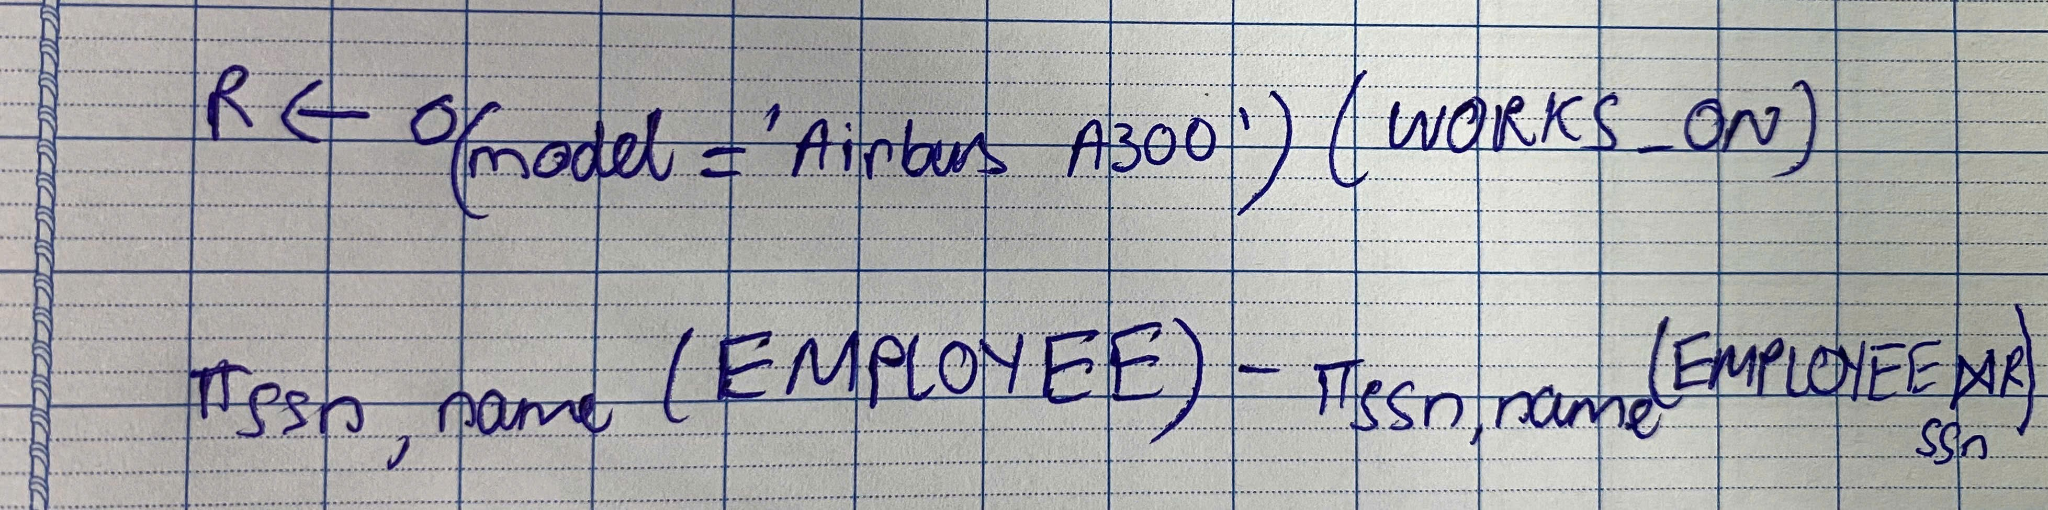 R ← σ(model = 'Airbus A300') (WORKS_ON)
π ssn, name (EMPLOYEE) - π ssn, name (EMPLOYEE ⋈ R)
ssn